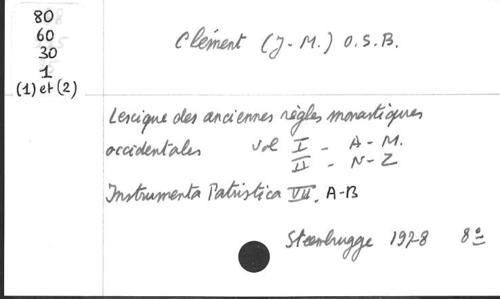 80
60
30
1
(1) et (2)
Clément (J-M.) O.S.B.
Lexique des anciennes règles monastiques
occidentales vol I - A-M.
II - N-Z
Instrumenta Patristica VII, A-B
Steenbrugge 1978 8°